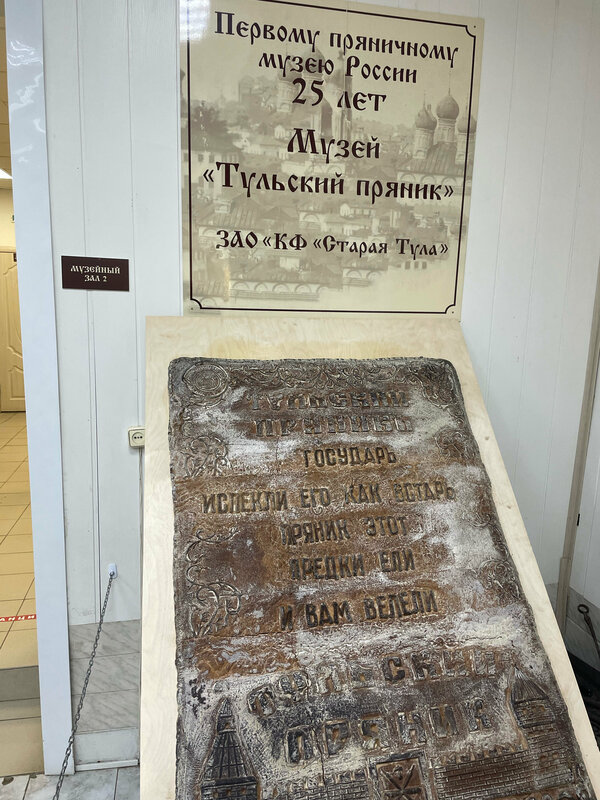 Первому пряничному
музею России
25 лет
Музей
«Тульский пряник»
ЗАО «КФ «Старая Тула»
МУЗЕЙНЫЙ
ЗАЛ 2
ТУЛЬСКИЙ
ПРЯНИК
ГОСУДАРЬ
ИСПЕКЛИ ЕГО КАК ВСТАРЬ
ПРЯНИК ЭТОТ
ПРЕДКИ ЕЛИ
И ВАМ ВЕЛЕЛИ
ТУЛЬСКИЙ
ПРЯНИК